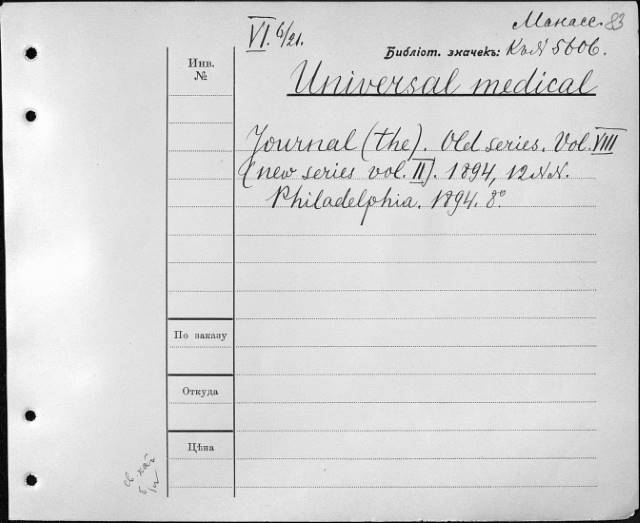 Манасс. 83
VI. 6/21.
Библіот. значекъ: К.№5606.
Инв. №
Universal medical
Journal (the). Old series. Vol. VIII
(new series vol. II). 1894, 12 NN.
Philadelphia. 1894. 8°
По заказу
Откуда
Цѣна